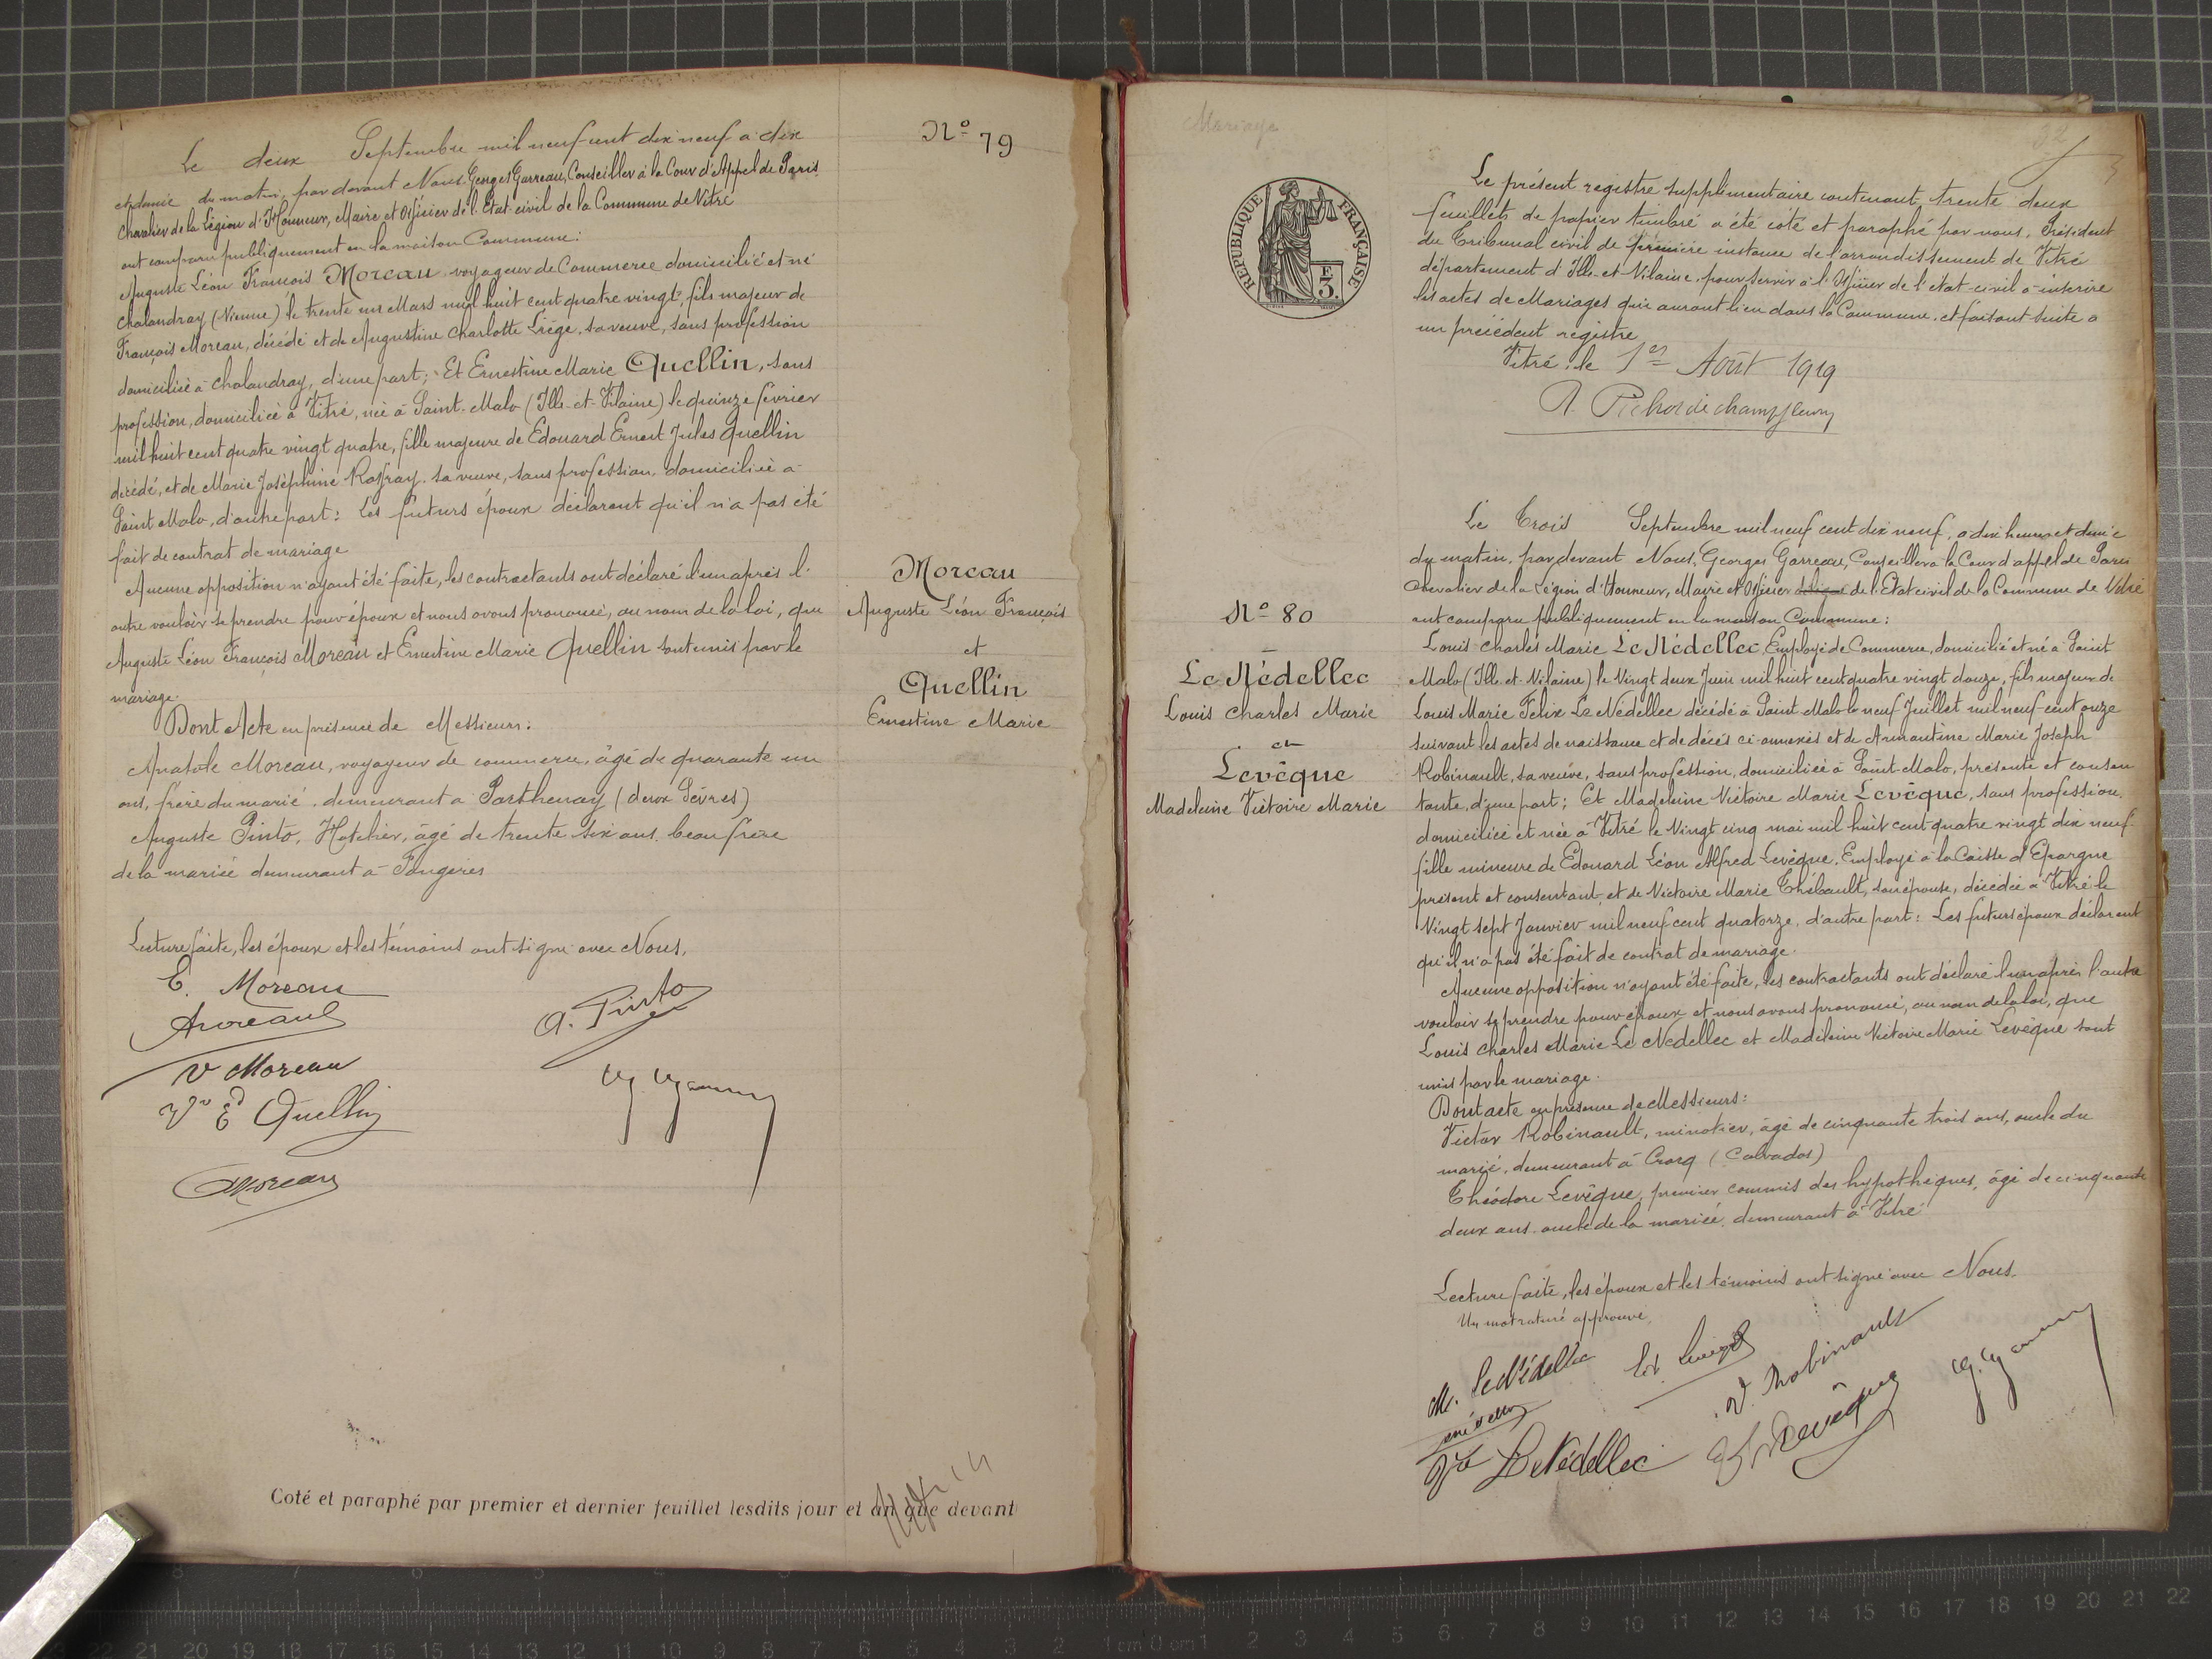 Le deux Septembre mil neuf cent dix neuf à dix
et demie du matin, par devant Nous, Georges Garreau, Conseiller à la Cour d'Appel de Paris,
Chevalier de la Légion d'Honneur, Maire et Officier de l'Etat civil de la Commune de Vitré
ont comparu publiquement en la maison Commune:
Auguste Léon François Moreau voyageur de Commerce domicilié et né
Chalandray (Vienne) le trente un Mars mil huit cent quatre vingt, fils majeur de
François Moreau, décédé et de Augustine Charlotte Liège, sa veuve, sans profession
domiciliée à Chalandray, d'une part; Et Ernestine Marie Quellin, sans
profession, domiciliée à Vitré, née à Saint-Malo (Ille-et-Vilaine) le quinze février
mil huit cent quatre vingt quatre, fille majeure de Edouard Ernest Jules Quellin
décédé, et de Marie Joséphine Raffray, sa veuve, sans profession, domiciliée à
Saint Malo, d'autre part: Les futurs époux déclarent qu'il n'a pas été
fait de contrat de mariage
Aucune opposition n'ayant été faite, les contractants ont déclaré l'un après l'
autre vouloir se prendre pour époux et nous avons prononcé, au nom de la loi, que
Auguste Léon François Moreau et Ernestine Marie Quellin sont unis par le
mariage.
Dont Acte en présence de Messieurs:
Anatole Moreau, voyageur de commerce, âgé de quarante un
ans, frère du marié, demeurant à Parthenay (deux Sèvres)
Auguste Pinto, Hôtelier, âgé de trente six ans, beau frère
de la mariée demeurant à Fougères
Lecture faite, les époux et les témoins ont signé avec Nous.
E. Moreau
A. Pinto
V Moreau
Vve Ed Quellin
Moreau
Coté et paraphé par premier et dernier feuillet lesdits jour et an que devant
N° 79
Moreau
Auguste Léon François
et
Quellin
Ernestine Marie
Mariage
32
RÉPUBLIQUE FRANÇAISE
E
3.
Le présent registre supplémentaire contenant trente deux
feuillets de papier timbré a été coté et paraphé par nous, Président
du Tribunal civil de première instance de l'arrondissement de Vitré
département d'Ille-et-Vilaine, pour servir à l'Officier de l'état civil à inscrire
les actes de Mariages qui auront lieu dans la Commune, et faisant suite à
un précédent registre
Vitré, le 1er Août 1919
N° 80
Le Nédellec
Louis Charles Marie
et
Levêque
Madeleine Victoire Marie
Le Trois Septembre mil neuf cent dix neuf, à dix heures et demie
du matin, par devant Nous, Georges Garreau, Conseiller à la Cour d'appel de Paris
Chevalier de la Légion d'Honneur, Maire et Officier de l'Etat civil de la Commune de Vitré
ont comparu publiquement en la maison Commune:
Louis Charles Marie Le Nédellec, Employé de Commerce, domicilié et né à Saint
Malo (Ille-et-Vilaine) le Vingt deux Juin mil huit cent quatre vingt douze, fils majeur de
Louis Marie Félix Le Nédellec décédé à Saint-Malo le neuf Juillet mil neuf cent onze
suivant les actes de naissance et de décès ci-annexés et de Armantine Marie Joseph
Robinault, sa veuve, sans profession, domiciliée à Saint-Malo, présente et consen
tante, d'une part; Et Madeleine Victoire Marie Levêque, sans profession,
domiciliée et née à Vitré le Vingt cinq mai mil huit cent quatre vingt dix neuf
fille mineure de Edouard Léon Alfred Levêque, Employé à la Caisse d'Epargne
présent et consentant, et de Victoire Marie Thébault, son épouse, décédée à Vitré le
Vingt sept Janvier mil neuf cent quatorze, d'autre part: Les futurs époux déclarent
qu'il n'a pas été fait de contrat de mariage.
Aucune opposition n'ayant été faite, les contractants ont déclaré l'un après l'autre
vouloir se prendre pour époux et nous avons prononcé, au nom de la loi, que
Louis Charles Marie Le Nédellec et Madeleine Victoire Marie Levêque sont
unis par le mariage.
Dont acte en présence de Messieurs:
Victor Robinault, minotier, âgé de cinquante trois ans, oncle du
marié, demeurant à (Calvados)
Théodore Levêque, premier commis des hypothèques, âgé de cinquante
deux ans, oncle de la mariée, demeurant à Vitré
Lecture faite, les époux et les témoins ont signé avec Nous.
Un mot raturé approuvé,
M. Le Nédellec
V. Robinault
Vve Le Nédellec
Levêque
1 cm 0 cm 1 2 3 4 5 6 7 8 9 10 11 12 13 14 15 16 17 18 19 20 21 22